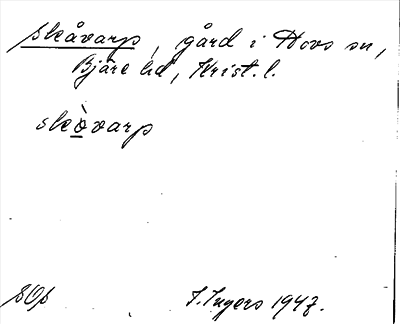 Skåvarp, gård i Hovs sn,
Bjäre hd, Krist. l.
skò̲varp
SOp
I. Ingers 1947.